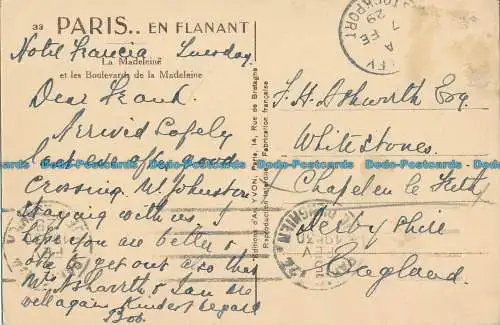 33 PARIS.. EN FLANANT
La Madeleine
et les Boulevards de la Madeleine
Hotel Francia Tuesday
Dear Frank.
Arrived Safely
last eve after good
crossing. Mr Johnston
staying with us, I
hope you are better &
able to get out also that
Mrs Ashworth & Ian are
well again Kindest Regards
Bob.
Editions d'Art YVON, Paris, 14, Rue de Bretagne
Reproduction interdite Fabrication française
F. H. Ashworth Esq.
Whitestones.
Chapel en le Frith
Derbyshire
England.
STOCKPORT
7 FE
29
Dodo-Postcards Dodo-Postcards Dodo-Postcards Dodo-Postcards Dodo-Postcards